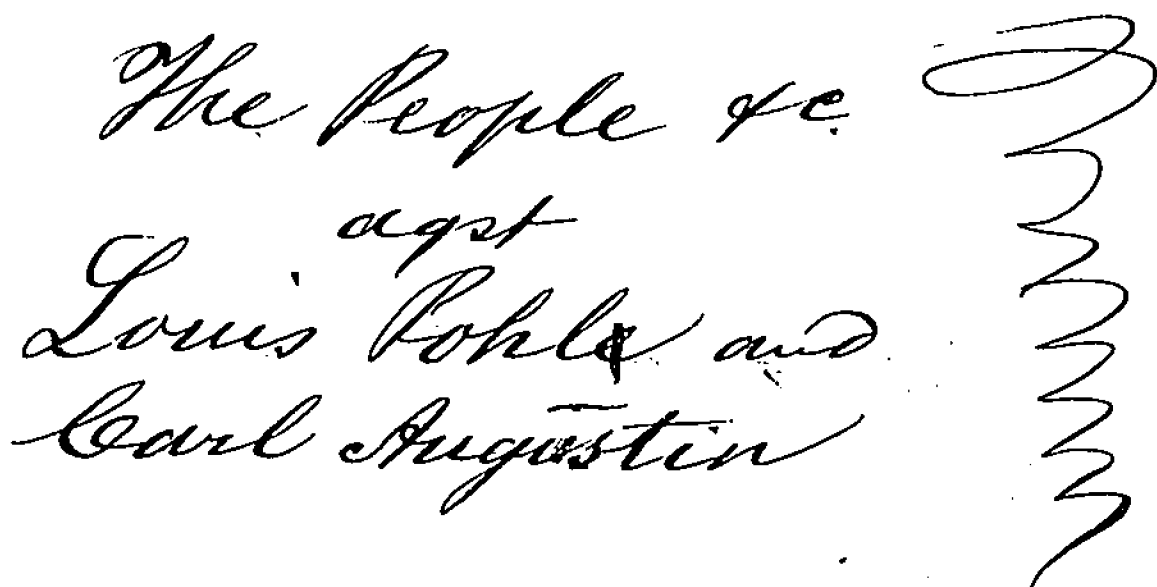 The People &c.
agst
Louis Pohle and
Carl Augustin